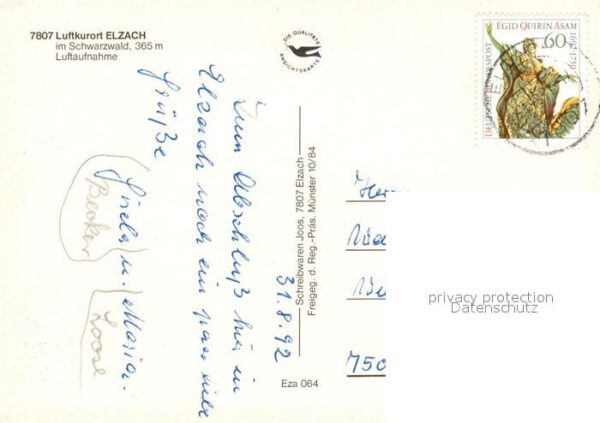 7807 Luftkurort ELZACH
im Schwarzwald, 365 m
Luftaufnahme
DIE QUALITÄTS
ANSICHTSKARTE
EGID QUIRIN ASAM
1692-1750
60
DEUTSCHE BUNDESPOST
Zum Abschluß hier in
Elzach noch ein paar liebe
Grüße
Gisela u. Marian.
Becker
Loose
31.8.92
Schreibwaren Joos, 7807 Elzach
Freigeg. d. Reg.-Präs. Münster 10/84
Eza 064
750
privacy protection
Datenschutz